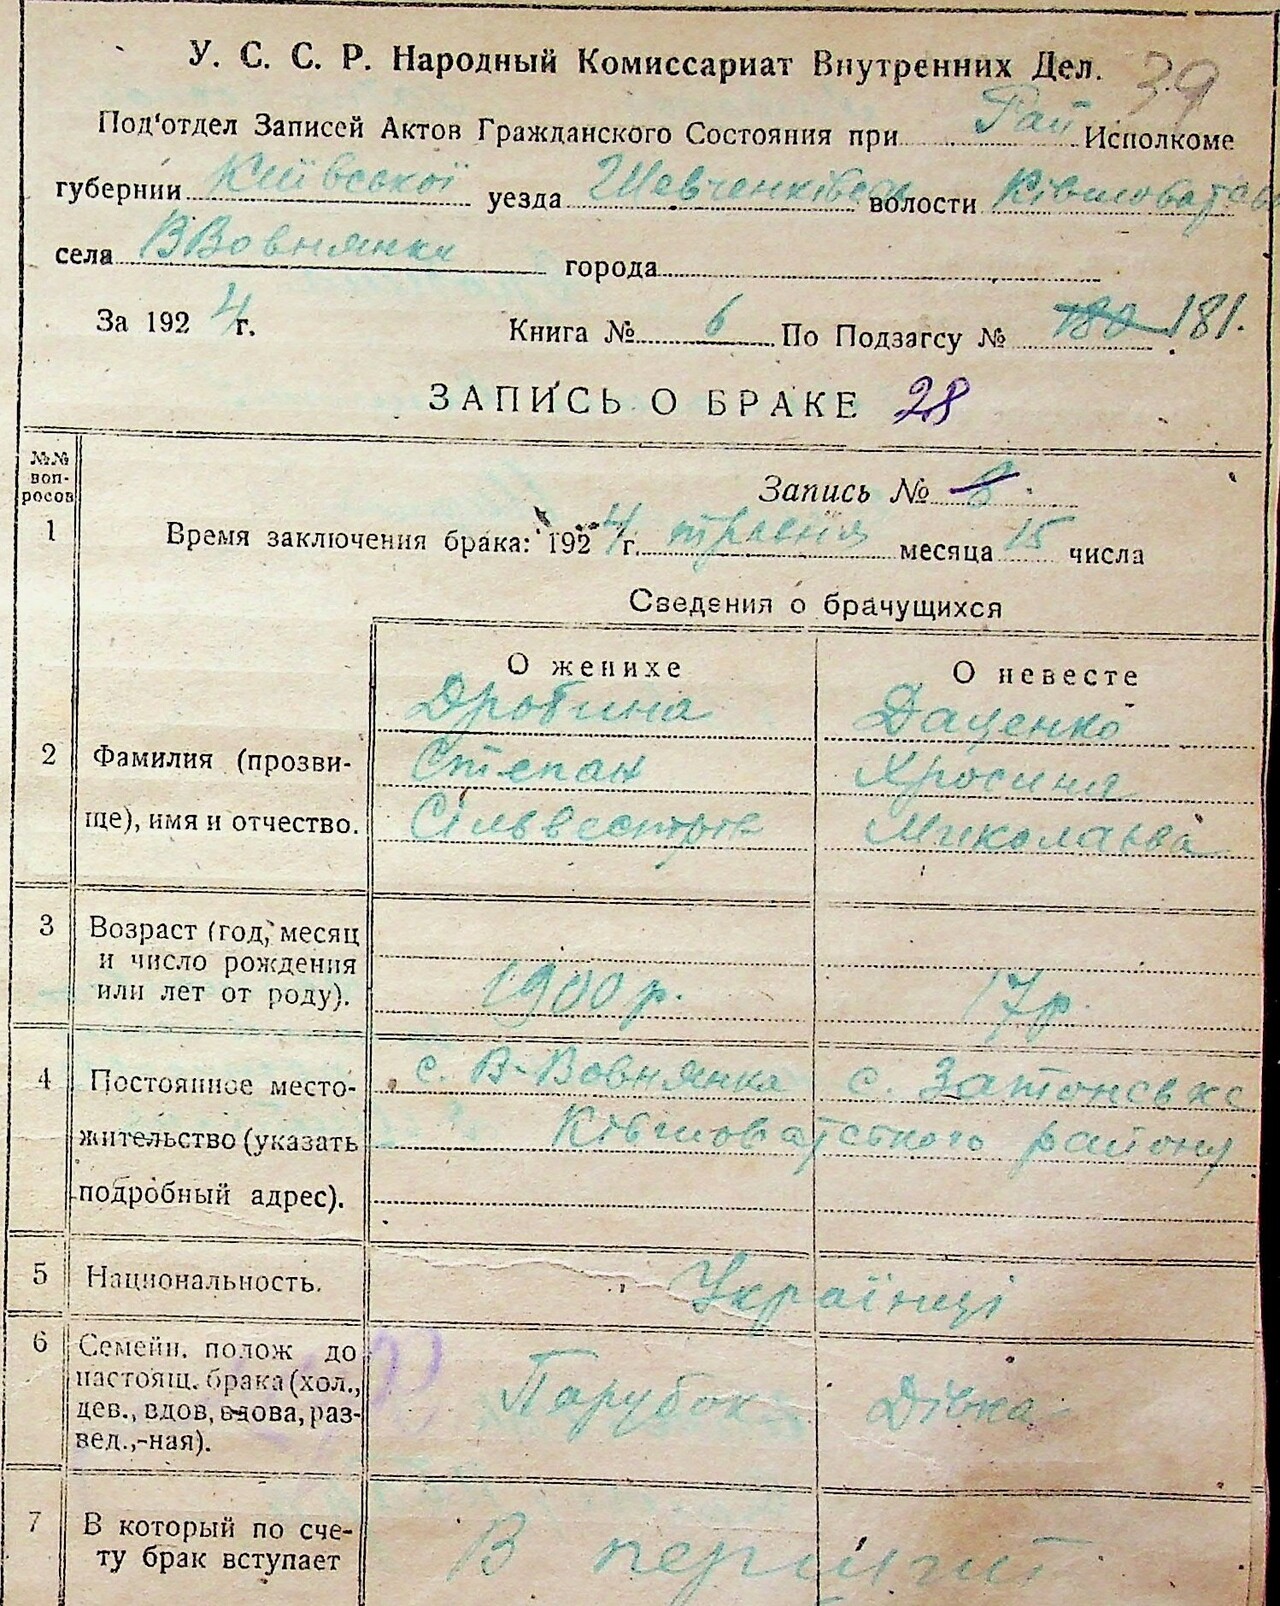 39
У. С. С. Р. Народный Комиссариат Внутренних Дел.
Под'отдел Записей Актов Гражданского Состояния при Рай Исполкоме
губернии Київської уезда волости
села В Вовнянка города
За 1924 г. Книга № 6 По Подзагсу № 180 181.
ЗАПИСЬ О БРАКЕ 28
№№ вопросов
Запись № 8.
1 Время заключения брака: 1924 г. травня месяца 15 числа
Сведения о брачущихся
О женихе О невесте
Дробина Даценко
2 Фамилия (прозви- Степан Хросина
ще), имя и отчество. Сільвестров Миколаєва
3 Возраст (год, месяц
и число рождения
или лет от роду). 1900 р. 17 р.
4 Постоянное место- с. В-Вовнянка с.
жительство (указать району
подробный адрес).
5 Национальность. Українці
6 Семейн. полож до
настоящ. брака (хол., Парубок Дівка
дев., вдов, вдова, раз-
вед.,-ная).
7 В который по сче- В перший
ту брак вступает